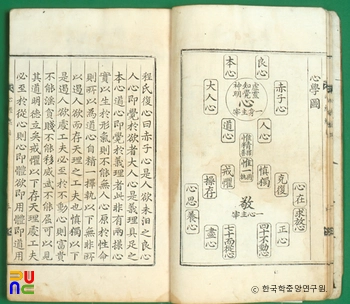 心學圖
良心
本心
虛靈
知覺
神明
心
身主宰
赤子心
大人心
人心
道心
惟精擇善
惟一固執
慎獨
戒懼
克復
操存
敬
一心主宰
心在
求放心
心思
養心
正心
盡心
四十不動心
七十而從心
程氏復心曰赤子心是人欲未汩之良心
人心即覺於欲者大人心是義理具足之
本心道心即覺於義理者此非有兩樣心
實以生於形氣則皆不能無人心原於性命
則所以爲道心自精一擇執以下無非所
以遏人欲而存天理之工夫也慎獨以下
是遏人欲處工夫必至於不動心則富貴
不能淫貧賤不能移威武不能屈可以見
其道明德立矣戒懼以下是存天理處工夫
必至於從心則心即體欲即用體即道用
PUNC
ⓒ 한국학중앙연구원